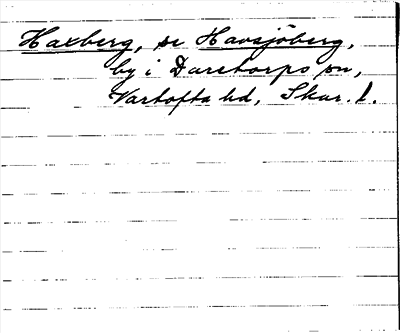 Haxberg, se Havsjöberg,
by i Daretorps sn,
Vartofta hd, Skar. l.